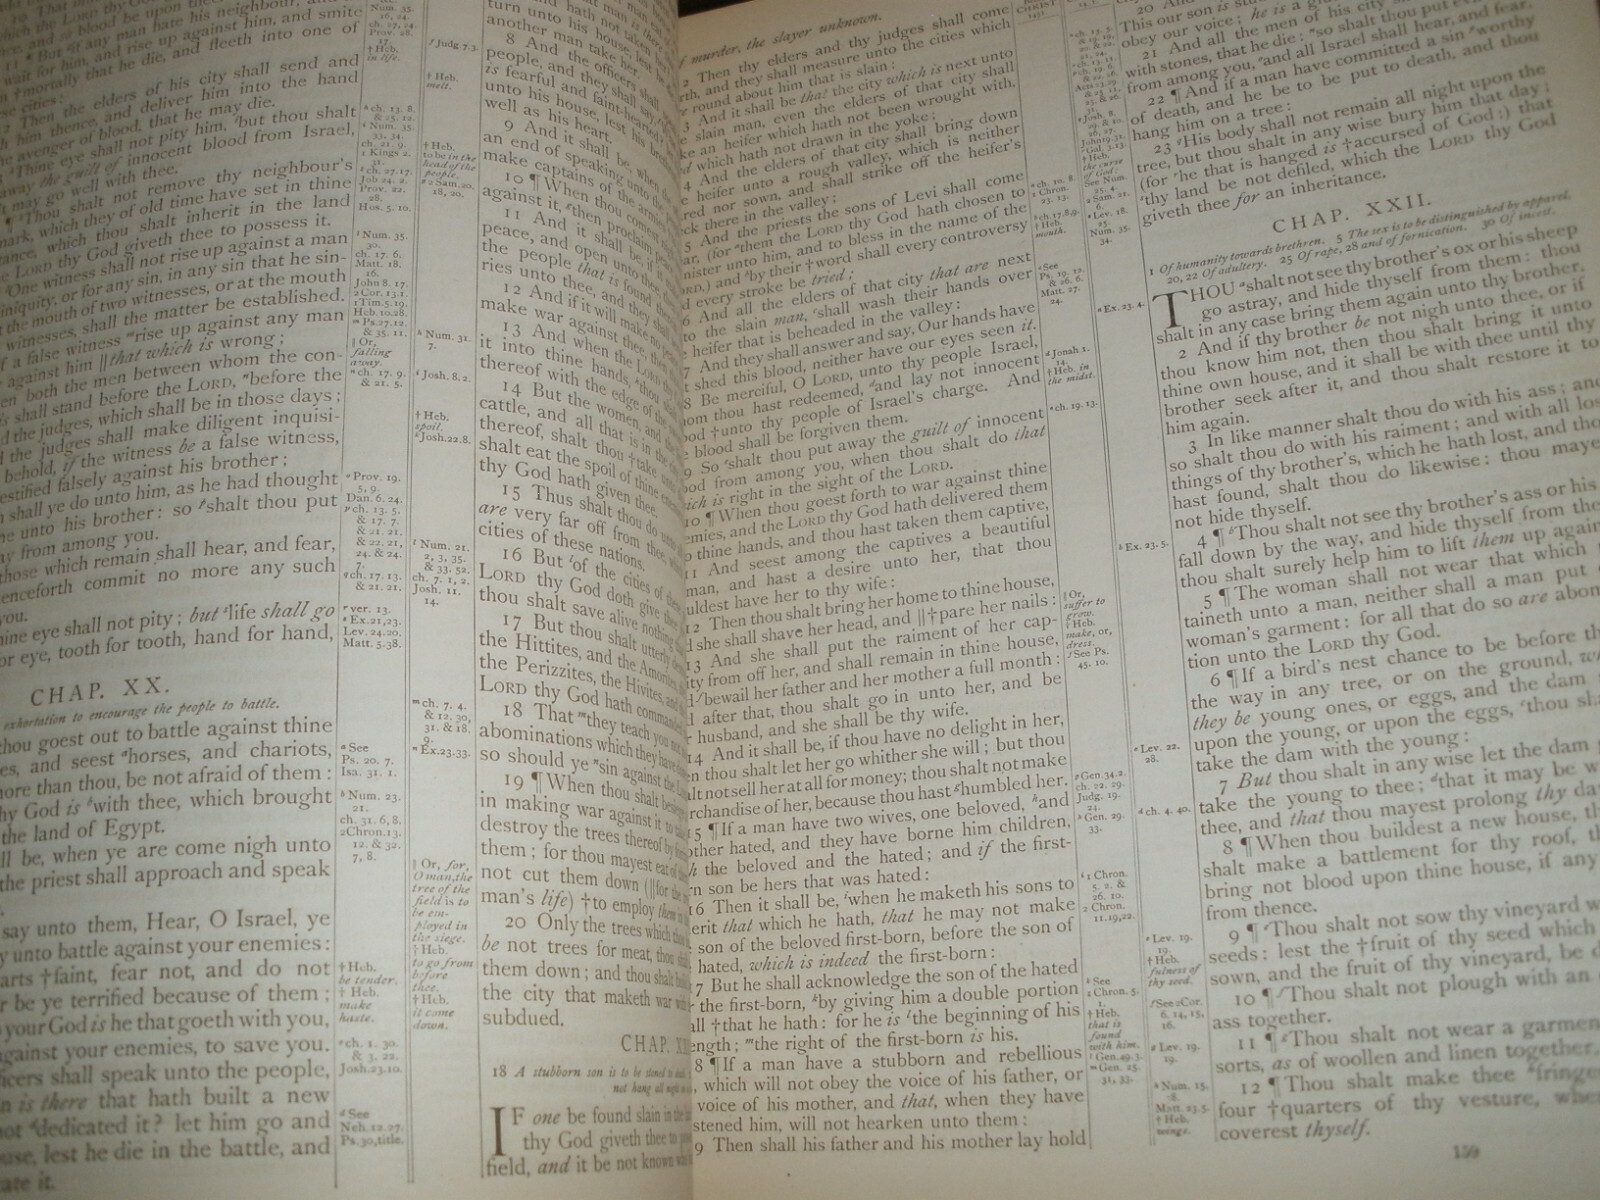 10 That
11 ¶ But if any man hate his neighbour, and
wait for him, and rise up against him, and smite
mortally that he die, and fleeth into one of
se cities:
Then the elders of his city shall send and
him thence, and deliver him into the hand
he avenger of blood, that he may die.
Thine eye shall not pity him, but thou shalt
away the guilt of innocent blood from Israel,
it may go well with thee.
Thou shalt not remove thy neighbour's
mark, which they of old time have set in thine
tance, which thou shalt inherit in the land
LORD thy God giveth thee to possess it.
One witness shall not rise up against a man
iniquity, or for any sin, in any sin that he sin-
the mouth of two witnesses, or at the mouth
witnesses, shall the matter be established.
f a false witness rise up against any man
against him ‖that which is wrong;
en both the men between whom the con-
is shall stand before the LORD, before the
d the judges, which shall be in those days;
d the judges shall make diligent inquisi-
behold, if the witness be a false witness,
estified falsely against his brother;
n shall ye do unto him, as he had thought
ne unto his brother: so shalt thou put
ay from among you.
those which remain shall hear, and fear,
enceforth commit no more any such
you.
hine eye shall not pity; but life shall go
or eye, tooth for tooth, hand for hand,
CHAP. XX.
exhortation to encourage the people to battle.
thou goest out to battle against thine
es, and seest horses, and chariots,
more than thou, be not afraid of them:
hy God is with thee, which brought
the land of Egypt.
ll be, when ye are come nigh unto
the priest shall approach and speak
say unto them, Hear, O Israel, ye
y unto battle against your enemies:
arts †faint, fear not, and do not
r be ye terrified because of them;
your God is he that goeth with you,
against your enemies, to save you.
icers shall speak unto the people,
n is there that hath built a new
not dedicated it? let him go and
use, lest he die in the battle, and
ate it.
Num. 35.
16, 24.
ch. 27. 24.
Prov. 28.
17.
† Heb.
in life.
ch. 13. 8.
& 25. 12.
Num. 35.
33, 34.
ch. 21. 9.
1 Kings 2.
31.
ch. 27. 17.
Job 24. 2.
Prov. 22.
28.
Hos. 5. 10.
Num. 35.
30.
ch. 17. 6.
Matt. 18.
16.
John 8. 17.
2 Cor. 13. 1.
1 Tim. 5. 19.
Heb. 10. 28.
Ps. 27. 12.
& 35. 11.
‖ Or,
falling
away.
ch. 17. 9.
& 21. 5.
Prov. 19.
5, 9.
Dan. 6. 24.
ch. 13. 5.
& 17. 7.
& 21. 21.
& 22. 21,
24. & 24.
7.
ch. 17. 13.
& 21. 21.
ver. 13.
Ex. 21, 23.
Lev. 24. 20.
Matt. 5. 38.
See
Ps. 20. 7.
Isa. 31. 1.
Num. 23.
21.
ch. 31. 6, 8.
2 Chron. 13.
12. & 32.
7, 8.
† Heb.
be tender.
† Heb.
make
haste.
ch. 1. 30.
& 3. 22.
Josh. 23. 10.
See
Neh. 12. 27.
Ps. 30, title.
Judg. 7. 3.
† Heb.
melt.
† Heb.
to be in the
head of the
people.
2 Sam. 20.
18, 20.
Num. 31.
7.
Josh. 8. 2.
† Heb.
spoil.
Josh. 22. 8.
Num. 21.
2, 3, 35.
& 33. 52.
ch. 7. 1, 2.
Josh. 11.
14.
ch. 7. 4.
& 12. 30,
31. & 18.
9.
Ex. 23. 33.
‖ Or, for,
O man, the
tree of the
field is to
be em-
ployed in
the siege.
† Heb.
to go from
before
thee.
† Heb.
it come
down.
turn unto his house, lest he
another man take her.
8 And the officers shall
people, and they shall say,
is fearful and faint-hearted?
unto his house, lest his
well as his heart.
9 And it shall be, when the
an end of speaking unto the
make captains of the armies
10 ¶ When thou comest
against it, then proclaim
11 And it shall be, if
peace, and open unto thee,
the people that is found
ries unto thee, and they shall
12 And if it will make no
make war against thee, then
13 And when the LORD
it into thine hands, thou
thereof with the edge of the
14 But the women, and
cattle, and all that is in the
thereof, shalt thou †take
shalt eat the spoil of thine
thy God hath given thee.
15 Thus shalt thou do unto
are very far off from thee, which
cities of these nations.
16 But of the cities of
LORD thy God doth give
thou shalt save alive nothing
17 But thou shalt utterly
the Hittites, and the Amorites,
the Perizzites, the Hivites, and
LORD thy God hath commanded
18 That they teach you not
abominations which they have
so should ye sin against the
19 ¶ When thou shalt besiege
in making war against it to
destroy the trees thereof by
them; for thou mayest eat of
not cut them down (‖for the
man's life) †to employ them in
20 Only the trees which thou
be not trees for meat, thou
them down; and thou shalt
the city that maketh war with
subdued.
CHAP.
18 A stubborn son is to be stoned to
not hang all night
IF one be found slain in the
thy God giveth thee to
field, and it be not known
f murder, the slayer unknown.
2 Then thy elders and thy judges shall come
rth, and they shall measure unto the cities which
e round about him that is slain:
3 And it shall be that the city which is next unto
slain man, even the elders of that city shall
ke an heifer which hath not been wrought with,
d which hath not drawn in the yoke;
4 And the elders of that city shall bring down
e heifer unto a rough valley, which is neither
red nor sown, and shall strike off the heifer's
ck there in the valley;
5 And the priests the sons of Levi shall come
ar, (for them the LORD thy God hath chosen to
nister unto him, and to bless in the name of the
ORD,) and by their †word shall every controversy
d every stroke be tried;
6 And all the elders of that city that are next
to the slain man, shall wash their hands over
heifer that is beheaded in the valley:
7 And they shall answer and say, Our hands have
t shed this blood, neither have our eyes seen it.
8 Be merciful, O LORD, unto thy people Israel,
om thou hast redeemed, and lay not innocent
ood †unto thy people of Israel's charge. And
blood shall be forgiven them.
9 So shalt thou put away the guilt of innocent
ood from among you, when thou shalt do that
ich is right in the sight of the LORD.
10 ¶ When thou goest forth to war against thine
emies, and the LORD thy God hath delivered them
o thine hands, and thou hast taken them captive,
11 And seest among the captives a beautiful
man, and hast a desire unto her, that thou
uldest have her to thy wife:
12 Then thou shalt bring her home to thine house,
d she shall shave her head, and ‖†pare her nails:
13 And she shall put the raiment of her cap-
ity from off her, and shall remain in thine house,
d bewail her father and her mother a full month:
d after that, thou shalt go in unto her, and be
r husband, and she shall be thy wife.
14 And it shall be, if thou have no delight in her,
en thou shalt let her go whither she will; but thou
alt not sell her at all for money; thou shalt not make
rchandise of her, because thou hast humbled her.
15 ¶ If a man have two wives, one beloved, and
other hated, and they have borne him children,
h the beloved and the hated; and if the first-
rn son be hers that was hated:
16 Then it shall be, when he maketh his sons to
erit that which he hath, that he may not make
son of the beloved first-born, before the son of
hated, which is indeed the first-born:
17 But he shall acknowledge the son of the hated
r the first-born, by giving him a double portion
all †that he hath: for he is the beginning of his
ength; the right of the first-born is his.
18 ¶ If a man have a stubborn and rebellious
, which will not obey the voice of his father, or
voice of his mother, and that, when they have
stened him, will not hearken unto them:
9 Then shall his father and his mother lay hold
CHRIST
1451.
ch. 10. 8.
1 Chron.
23. 13.
ch. 17. 8, 9.
† Heb.
mouth.
See
Ps. 19. 12.
& 26. 6.
Matt. 27.
24.
Jonah 1.
14.
† Heb. in
the midst.
ch. 19. 13.
‖ Or,
suffer to
grow.
† Heb.
make, or,
dress.
See Ps.
45. 10.
Gen. 34. 2.
ch. 22. 29.
Judg. 19.
24.
Gen. 29.
33.
1 Chron.
5. 2. &
26. 10.
2 Chron.
11. 19, 22.
See
1 Chron. 5.
1.
† Heb.
that is
found
with him.
Gen. 49. 3.
Gen. 25.
31, 33.
ch. 13. 5.
& 19. 19,
20. & 22.
21, 24.
ch. 13. 11.
ch. 19. 6.
& 22. 26.
Acts 23. 29.
& 25. 11,
25. & 26.
31.
Josh. 8.
29. & 10.
26, 27.
John 19. 31.
Gal. 3. 13.
† Heb.
the curse
of God:
See Num.
25. 4.
2 Sam. 21.
6.
Lev. 18.
25.
Num. 35.
34.
Ex. 23. 4.
Ex. 23. 5.
Lev. 22.
28.
ch. 4. 40.
Lev. 19.
19.
† Heb.
fulness of
thy seed.
See 2 Cor.
6. 14, 15,
16.
Lev. 19.
19.
Num. 15.
38.
Matt. 23. 5.
† Heb.
wings.
This our son is
obey our voice; he is a
21 And all the men of his city shall
with stones, that he die: so shalt thou put
from among you, and all Israel shall hear, and fear.
22 ¶ And if a man have committed a sin worthy
of death, and he be to be put to death, and thou
hang him on a tree:
23 His body shall not remain all night upon the
tree, but thou shalt in any wise bury him that day;
(for he that is hanged is †accursed of God:) that
thy land be not defiled, which the LORD thy God
giveth thee for an inheritance.
CHAP. XXII.
1 Of humanity towards brethren. 5 The sex is to be distinguished by apparel.
20, 22 Of adultery. 25 Of rape, 28 and of fornication. 30 Of incest.
THOU shalt not see thy brother's ox or his sheep
go astray, and hide thyself from them: thou
shalt in any case bring them again unto thy brother.
2 And if thy brother be not nigh unto thee, or if
thou know him not, then thou shalt bring it unto
thine own house, and it shall be with thee until thy
brother seek after it, and thou shalt restore it to
him again.
3 In like manner shalt thou do with his ass; and
so shalt thou do with his raiment; and with all los
things of thy brother's, which he hath lost, and tho
hast found, shalt thou do likewise: thou maye
not hide thyself.
4 ¶ Thou shalt not see thy brother's ass or his
fall down by the way, and hide thyself from the
thou shalt surely help him to lift them up again
5 ¶ The woman shall not wear that which
taineth unto a man, neither shall a man put
woman's garment: for all that do so are abom
tion unto the LORD thy God.
6 ¶ If a bird's nest chance to be before th
the way in any tree, or on the ground, w
they be young ones, or eggs, and the dam
upon the young, or upon the eggs, thou sh
take the dam with the young:
7 But thou shalt in any wise let the dam
take the young to thee; that it may be w
thee, and that thou mayest prolong thy da
8 ¶ When thou buildest a new house, th
shalt make a battlement for thy roof, th
bring not blood upon thine house, if any
from thence.
9 ¶ Thou shalt not sow thy vineyard w
seeds: lest the †fruit of thy seed which
sown, and the fruit of thy vineyard, be d
10 ¶ Thou shalt not plough with an
ass together.
11 ¶ Thou shalt not wear a garmen
sorts, as of woollen and linen together.
12 ¶ Thou shalt make thee fringes
four †quarters of thy vesture, wher
coverest thyself.
159